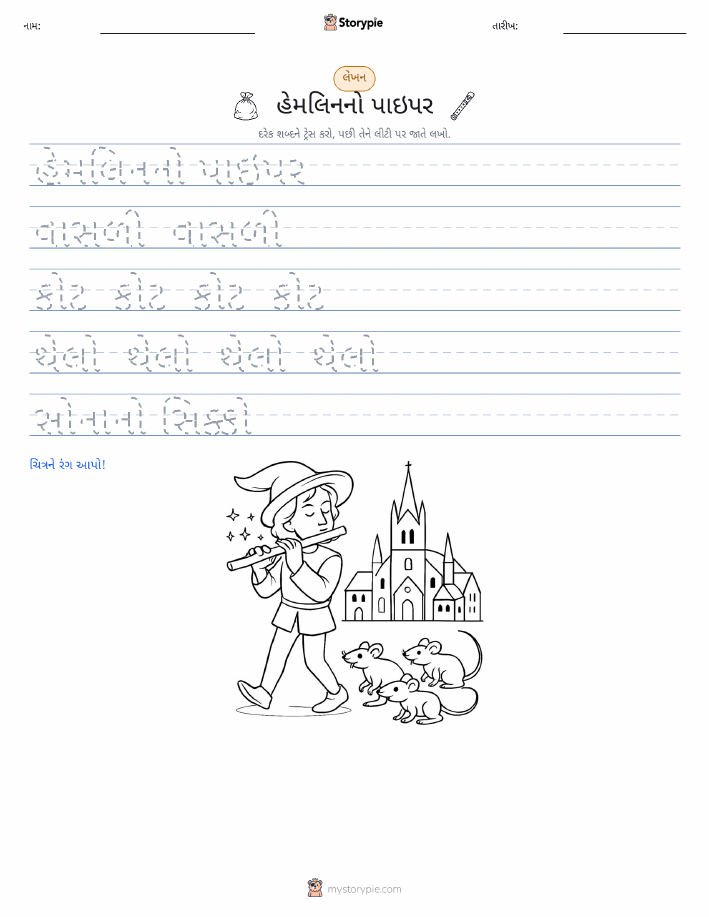 નામ:
Storypie
તારીખ:
લેખન
હેમલિનનો પાઇપર
દરેક શબ્દને ટ્રેસ કરો, પછી તેને લીટી પર જાતે લખો.
હેમલિનનો પાઇપર
વાસળી વાસળી
કોટ કોટ કોટ કોટ
થેલો થેલો થેલો થેલો
સોનાનો સિક્કો
ચિત્રને રંગ આપો!
mystorypie.com